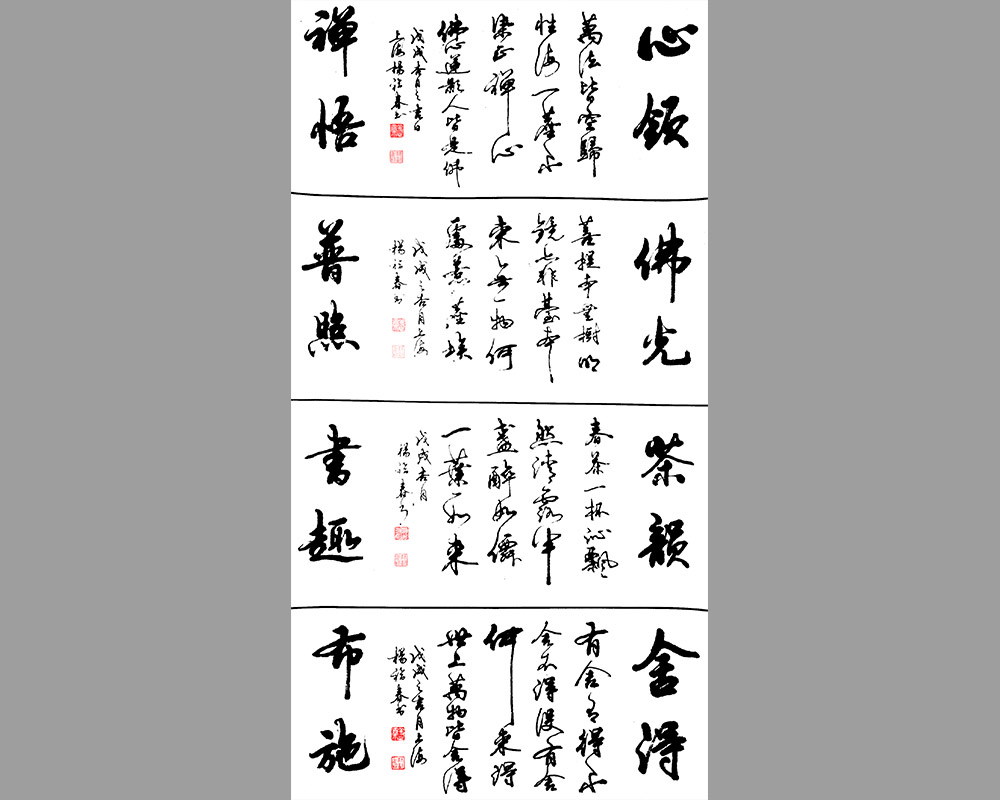 心领
萬法皆空歸
性海一塵不
染正禪心
佛心蓮影人皆是佛
戊戌杏月之吉日
上海楊語春書
禅悟
佛光
菩提本無樹明
鏡亦非臺本
來無一物何
處惹塵埃
戊戌之杏月上海
楊語春書
普照
茶韻
春茶一杯沁飄
然清露半
盞醉如僊
一葉一如来
戊戌杏月
楊語春書
書趣
舍得
有舍才有得不
舍不得没有舍
何来得
世上萬物皆舍得
戊戌之杏月上海
楊語春書
布施